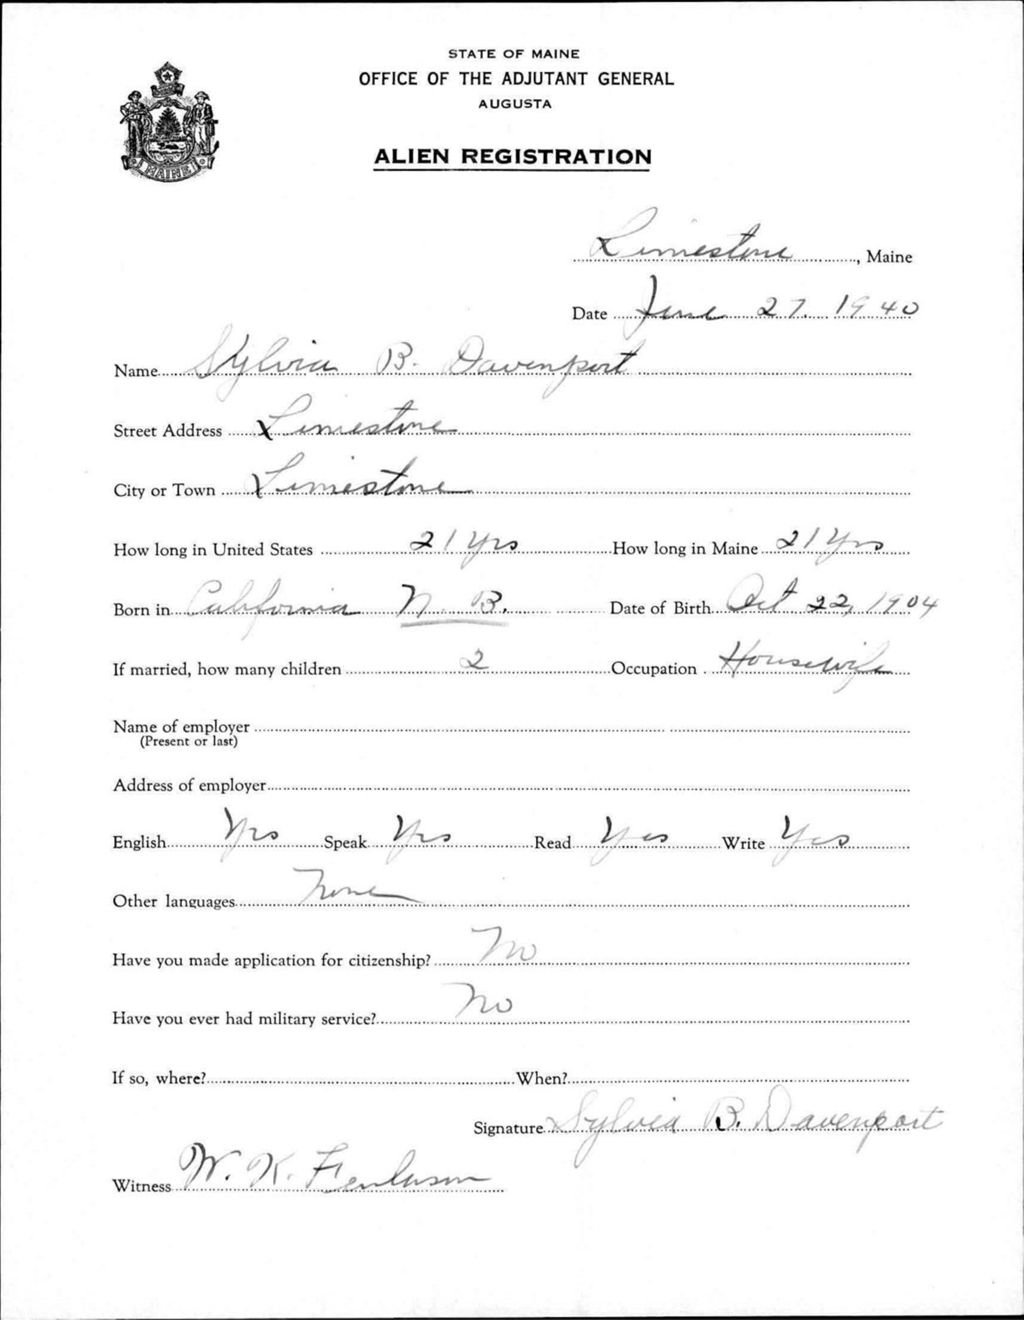 STATE OF MAINE
OFFICE OF THE ADJUTANT GENERAL
AUGUSTA
ALIEN REGISTRATION
MAINE
Limestone, Maine
Date June 27, 1940
Name Sylvia B. Davenport
Street Address Limestone
City or Town Limestone
How long in United States 21 Yrs How long in Maine 21 Yrs
Born in California N. B. Date of Birth Oct 22, 1904
If married, how many children 2 Occupation Housewife
Name of employer
(Present or last)
Address of employer
English Yes Speak Yes Read Yes Write Yes
Other languages None
Have you made application for citizenship? No
Have you ever had military service? No
If so, where? When?
Signature Sylvia B. Davenport
Witness W. K.